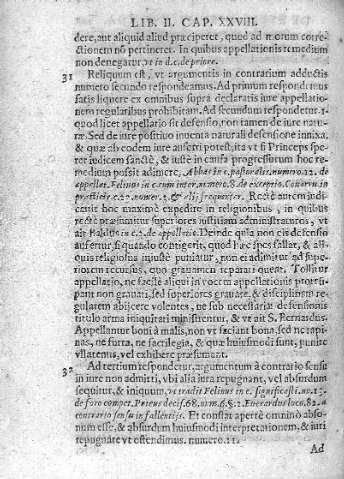 LIB. II. CAP. XXVIII.
dere, aut aliquid aliud præciperet, quod ad morum corre-
ctionem nō pertineret. In quibus appellationis remedium
non denegatur, vt in d.c. de priore.
31 Reliquum est, vt argumentis in contrarium adductis
numero secundo respondeamus. Ad primum respondemus
satis liquere ex omnibus supra declaratis iure appellatio-
nem regularibus prohibitam. Ad secundum respondetur,
quod licet appellatio sit defensio, non tamen de iure natu-
ræ. Sed de iure positiuo inuenta naturali defensione innixa,
& quæ ab eodem iure auferri potest, ita vt si Princeps spe-
ret iudicem sanctè, & iustè in causa progressurum hoc re-
medium possit adimere, Abbas in c. pastoralis. numero. 12. de
appellat. Felinus in c. cum inter. numero. 8. de exceptio. Couarru. in
practicis c. 23. numer. & alij frequenter. Rectè autem iudi-
canit hoc maximè expedire in religionibus, in quibus
restè præsumitur superiores iustitiam administraturos, vt
ait Baldus in c. 2. de appellatio. Deinde quia non eis defensio
aufertur, si quando contigerit, quod hæc spes fallat, & ali-
quis religiosus iniustè puniatur, non ei adimitur ad supe-
riorem recursus, quo grauamen reparari queat. Tollitur
appellatio, ne fastè aliqui in vocem appellationis prorum-
pant non grauati, sed superiores grauare, & disciplinam re-
gularem abijcere volentes, ne sub necessariæ defensionis
titulo arma iniquitati ministrentur, & vt ait S. Bernardus.
Appellantur boni à malis, non vt faciant bona, sed ne rapi-
nas, ne furta, ne sacrilegia, & quæ huiusmodi sunt, punire
vllatenus, vel exhibere præsumant.
32 Ad tertium respondetur, argumentum à contrario sensu
in iure non admitti, vbi alia iura repugnant, vel absurdum
sequitur, & iniquum, vt tradit Felinus in c. significasti. nu. 13.
de foro compet. Euerardus loco. 82. à
contrario sensu in fallentijs. Et constat apertè omninò abso-
num esse, & absurdum huiusmodi interpretationem, & iuri
repugnare vt ostendimus. numero. 21.
Ad